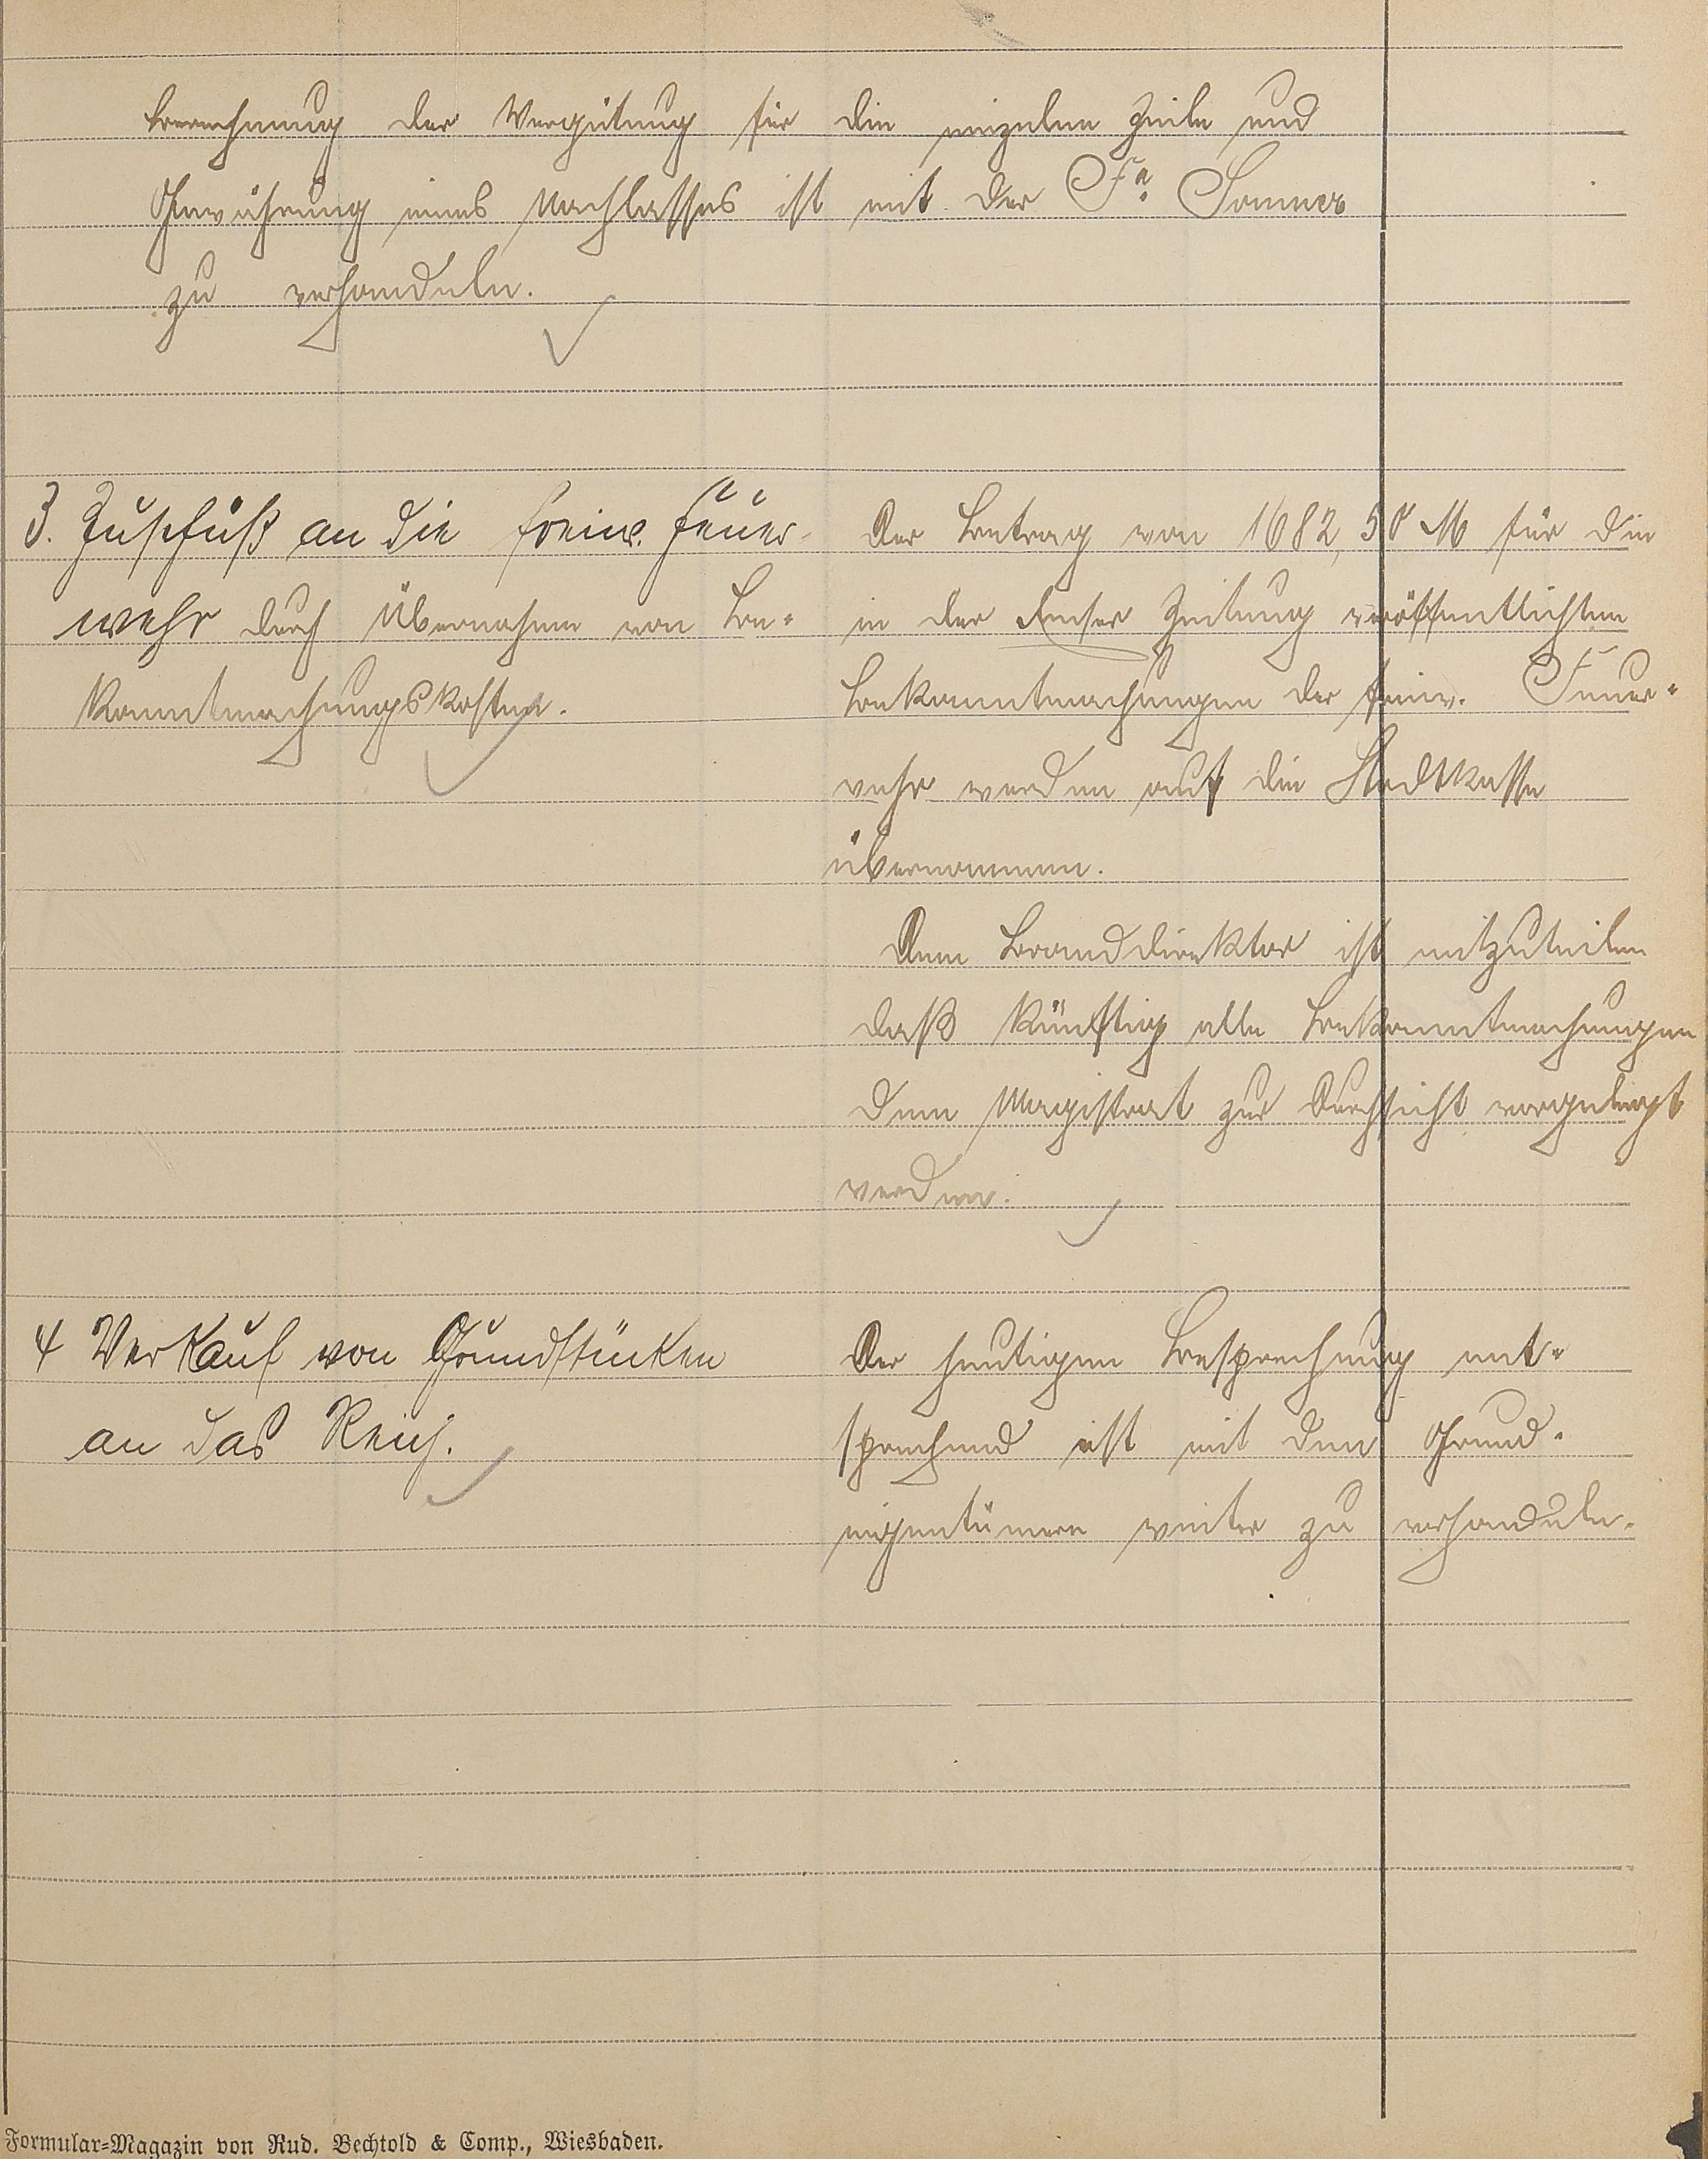 Berechnung der Vergütung für die einzelne Zeile und
Gewährung eines Nachlasses ist mit der Fa. Sommer
zu verhandeln.
3. Zuschuß an die freiw. Feuer-
wehr durch Übernahme von Be-
kanntmachungskosten.
Der Betrag von 1682,50 M für die
in der Emser Zeitung veröffentlichten
Bekanntmachungen der freiw. Feuer-
wehr werden auf die Stadtkasse
übernommen.
Dem Branddirektor ist mitzuteilen
daß künftig alle Bekanntmachungen
dem Magistrat zur Durchsicht vorgelegt
werden.
4 Verkauf von Grundstücken
an das Reich.
Der heutigen Besprechung ent-
sprechend ist mit den Grund-
eigentümern weiter zu verhandeln.
Formular-Magazin von Rud. Bechtold & Comp., Wiesbaden.